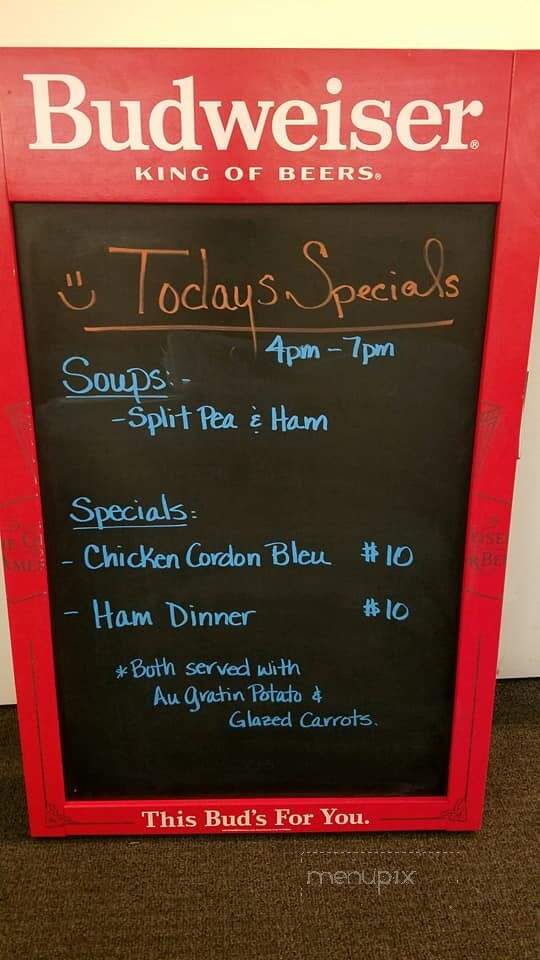 Budweiser®
KING OF BEERS®
Todays Specials
4pm - 7pm
Soups:-
-Split Pea & Ham
Specials:
- Chicken Cordon Bleu $10
- Ham Dinner $10
*Both served with
Au gratin Potato &
Glazed Carrots.
This Bud's For You.
menupix